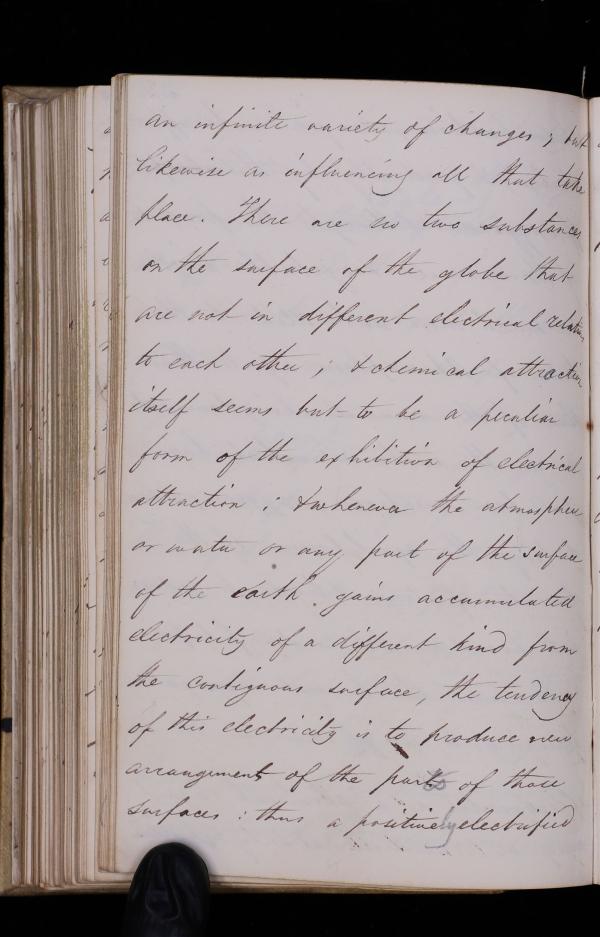 an infinite variety of changes; but
likewise as influencing all that take
place. There are no two substances
on the surface of the globe that
are not in different electrical relations
to each other; & chemical attraction
itself seems but to be a peculiar
form of the exhibition of electrical
attraction; & whenever the atmosphere
or water or any part of the surface
of the earth gains accumulated
electricity of a different kind from
the contiguous surface, the tendency
of this electricity is to produce new
arrangements of the parts of those
surfaces: thus a positively electrified